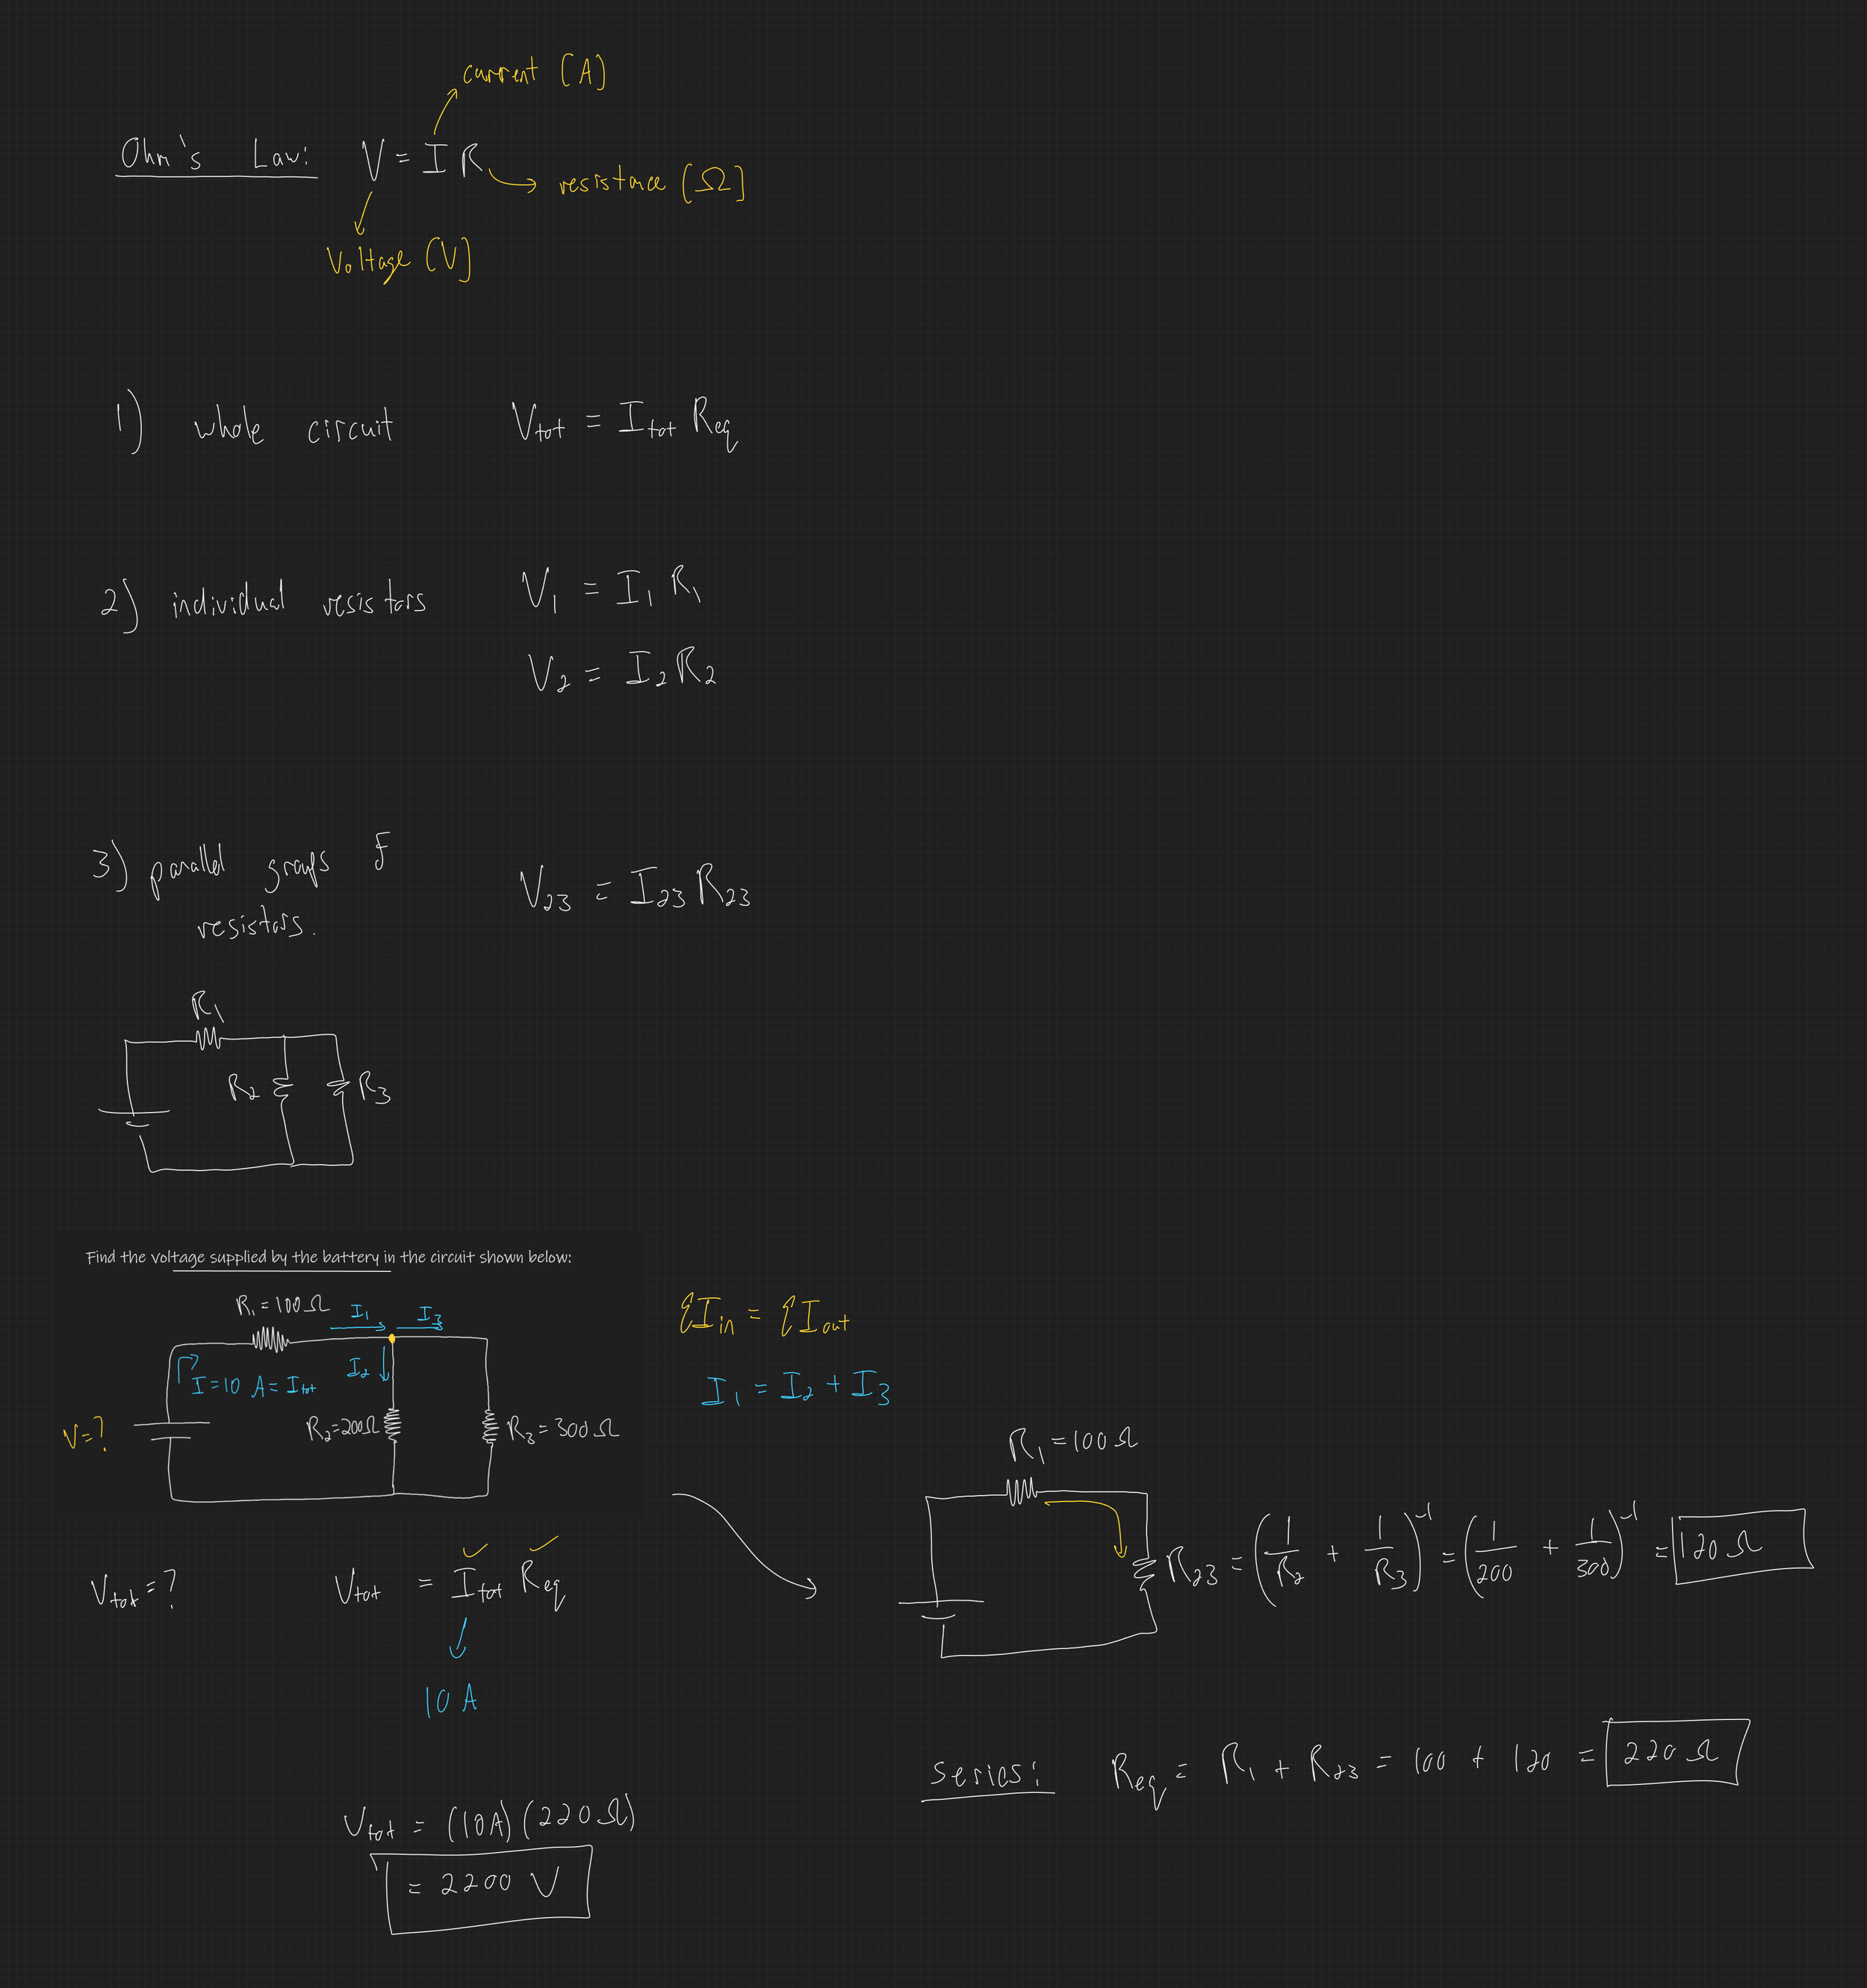 current (A)
Ohm's Law: V = I R
resistance [Ω]
Voltage (V]
1) whole circuit V_tot = I_tot R_eq
2) individual resistors V_1 = I_1 R_1
V_2 = I_2 R_2
3) parallel groups of
resistors.
V_23 = I_23 R_23
R_1
R_2 R_3
Find the voltage supplied by the battery in the circuit shown below:
R_1 = 100 Ω
I_1 I_3
I_2
I = 10 A = I_tot
V = ?
R_2 = 200 Ω
R_3 = 300 Ω
ΣI_in = ΣI_out
I_1 = I_2 + I_3
R_1 = 100 Ω
R_23 = (1/R_2 + 1/R_3)^-1 = (1/200 + 1/300)^-1 = 120 Ω
V_tot = ? V_tot = I_tot R_eq
10 A
series: R_eq = R_1 + R_23 = 100 + 120 = 220 Ω
V_tot = (10A) (220 Ω)
= 2200 V